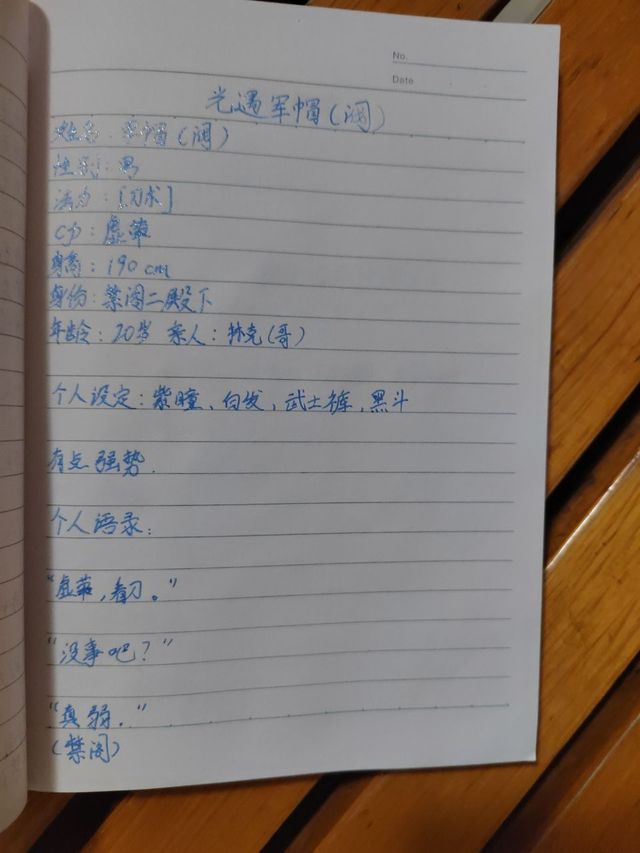 No.
Date
光遇军帽(阁)
姓名:军帽(阁)
性别:男
法力:[刀术]
CP:虚
身高:190cm
身份:禁阁二殿下
年龄:20岁 亲人:林克(哥)
个人设定:紫瞳、白发,武士裤,黑斗
有点强势.
个人语录:
"虚,看刀。"
"没事吧?"
"真弱."
(禁阁)